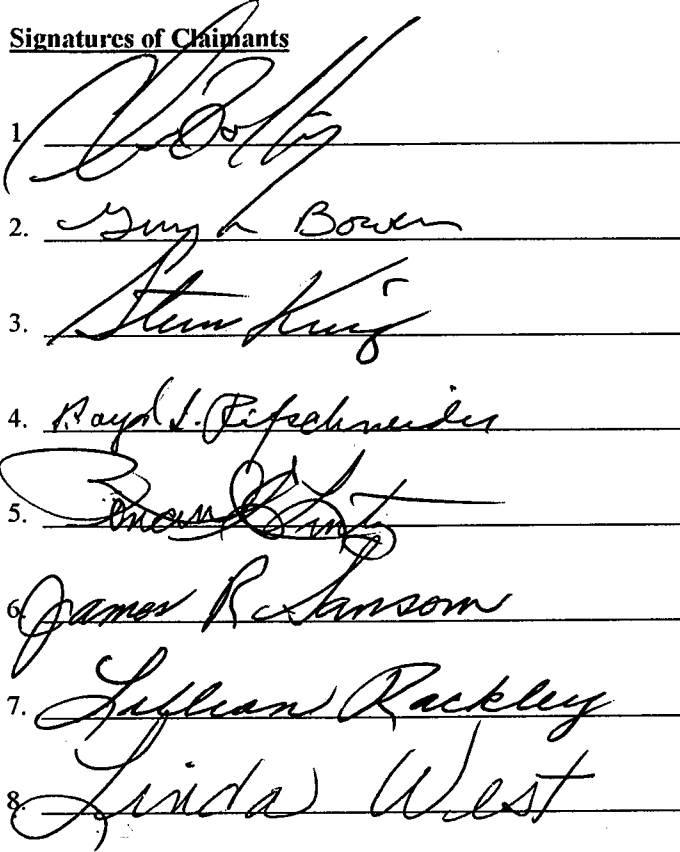 Signatures of Claimants
1
2. Bowen
3. Steven King
4. Lloyd L. Rifschneider
5.
6. James R. Sansom
7. Lillian Rackley
8. Linda West